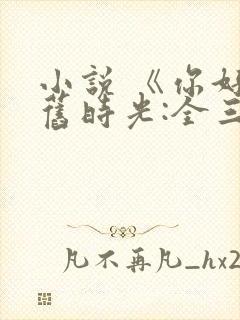 小说《你好
旧时光:全三
凡不再凡_hx2